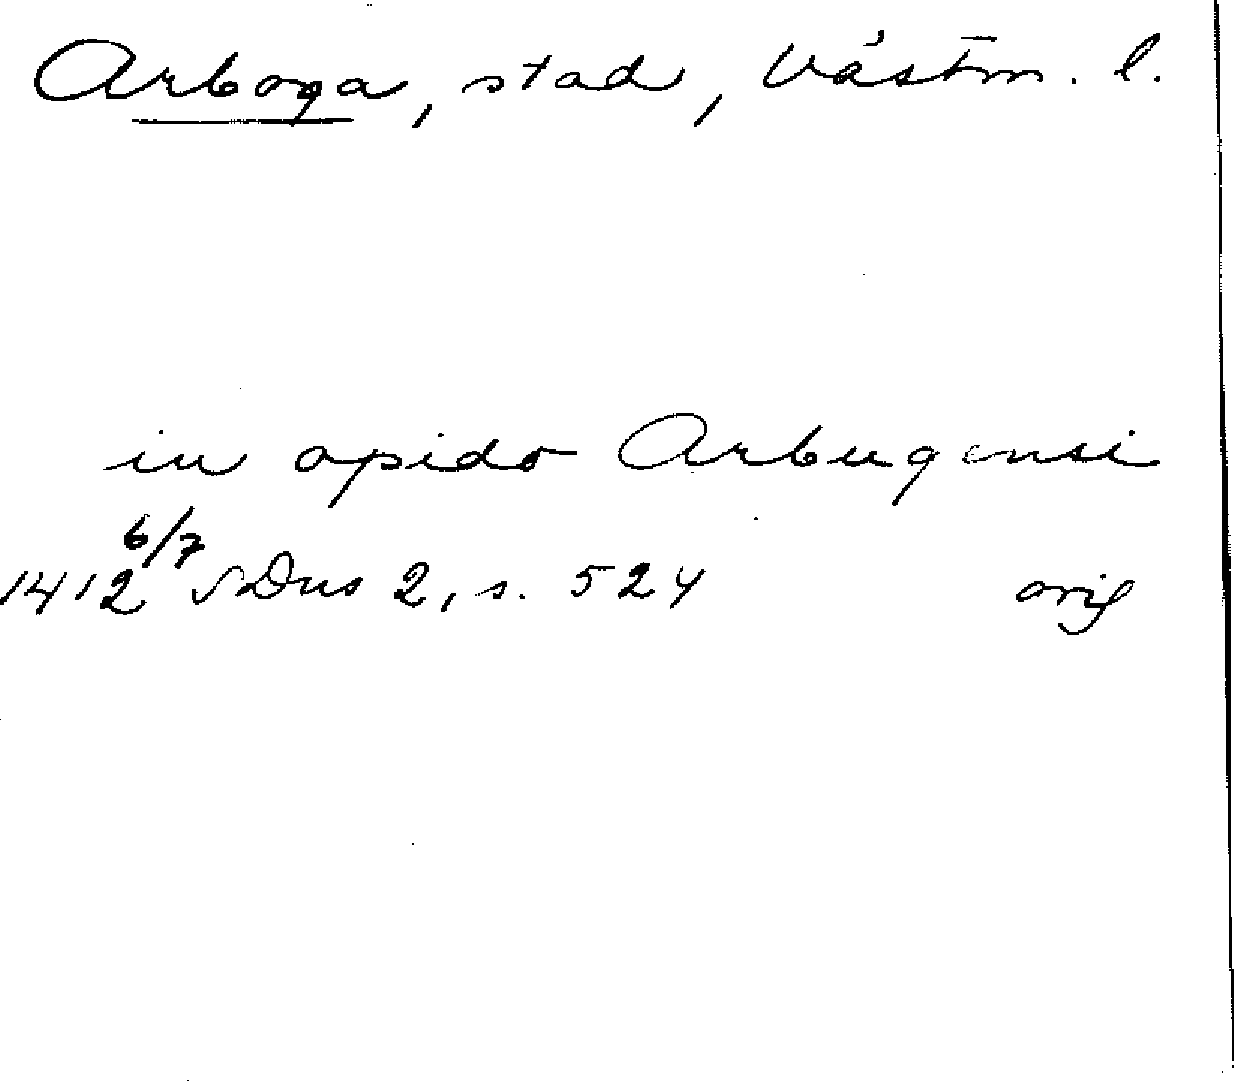 Arboga, stad, Västm. l.
in opido Arbugensi
1412 6/7 SDns 2, s. 524 orig